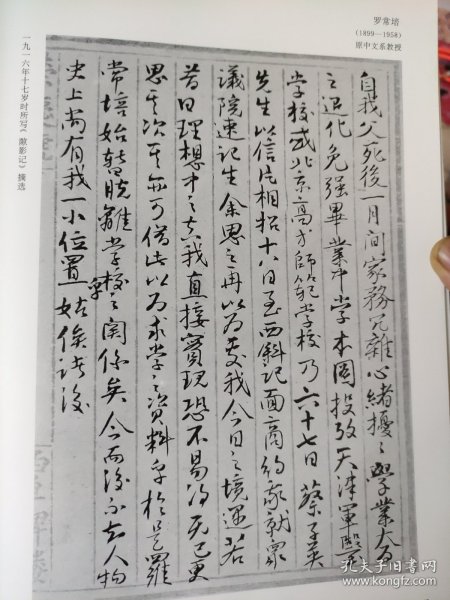 罗常培
(1899—1958)
原中文系教授
自我父死後一月间家務冗雜心緒擾之學業大為
之退化免强畢業中學本圖投攷天津軍醫
学校或北京高才師範学校乃六十七日蔡子英
先生以信片相招十八日至西斜記面商約家就眾
議院速記生余思之再以为哀我今日之境遇若
昔日理想中之真我直接實現恐不易得无已更
思其次其亦可借此以为求学之資料乎於是羅
常培始暫脱離学校之関係矣今而後不知人物
史上尚有我一小位置否姑俟诸後
一九一六年十七岁时所写《敝影记》摘选
孔夫子旧书网
kongfz.com